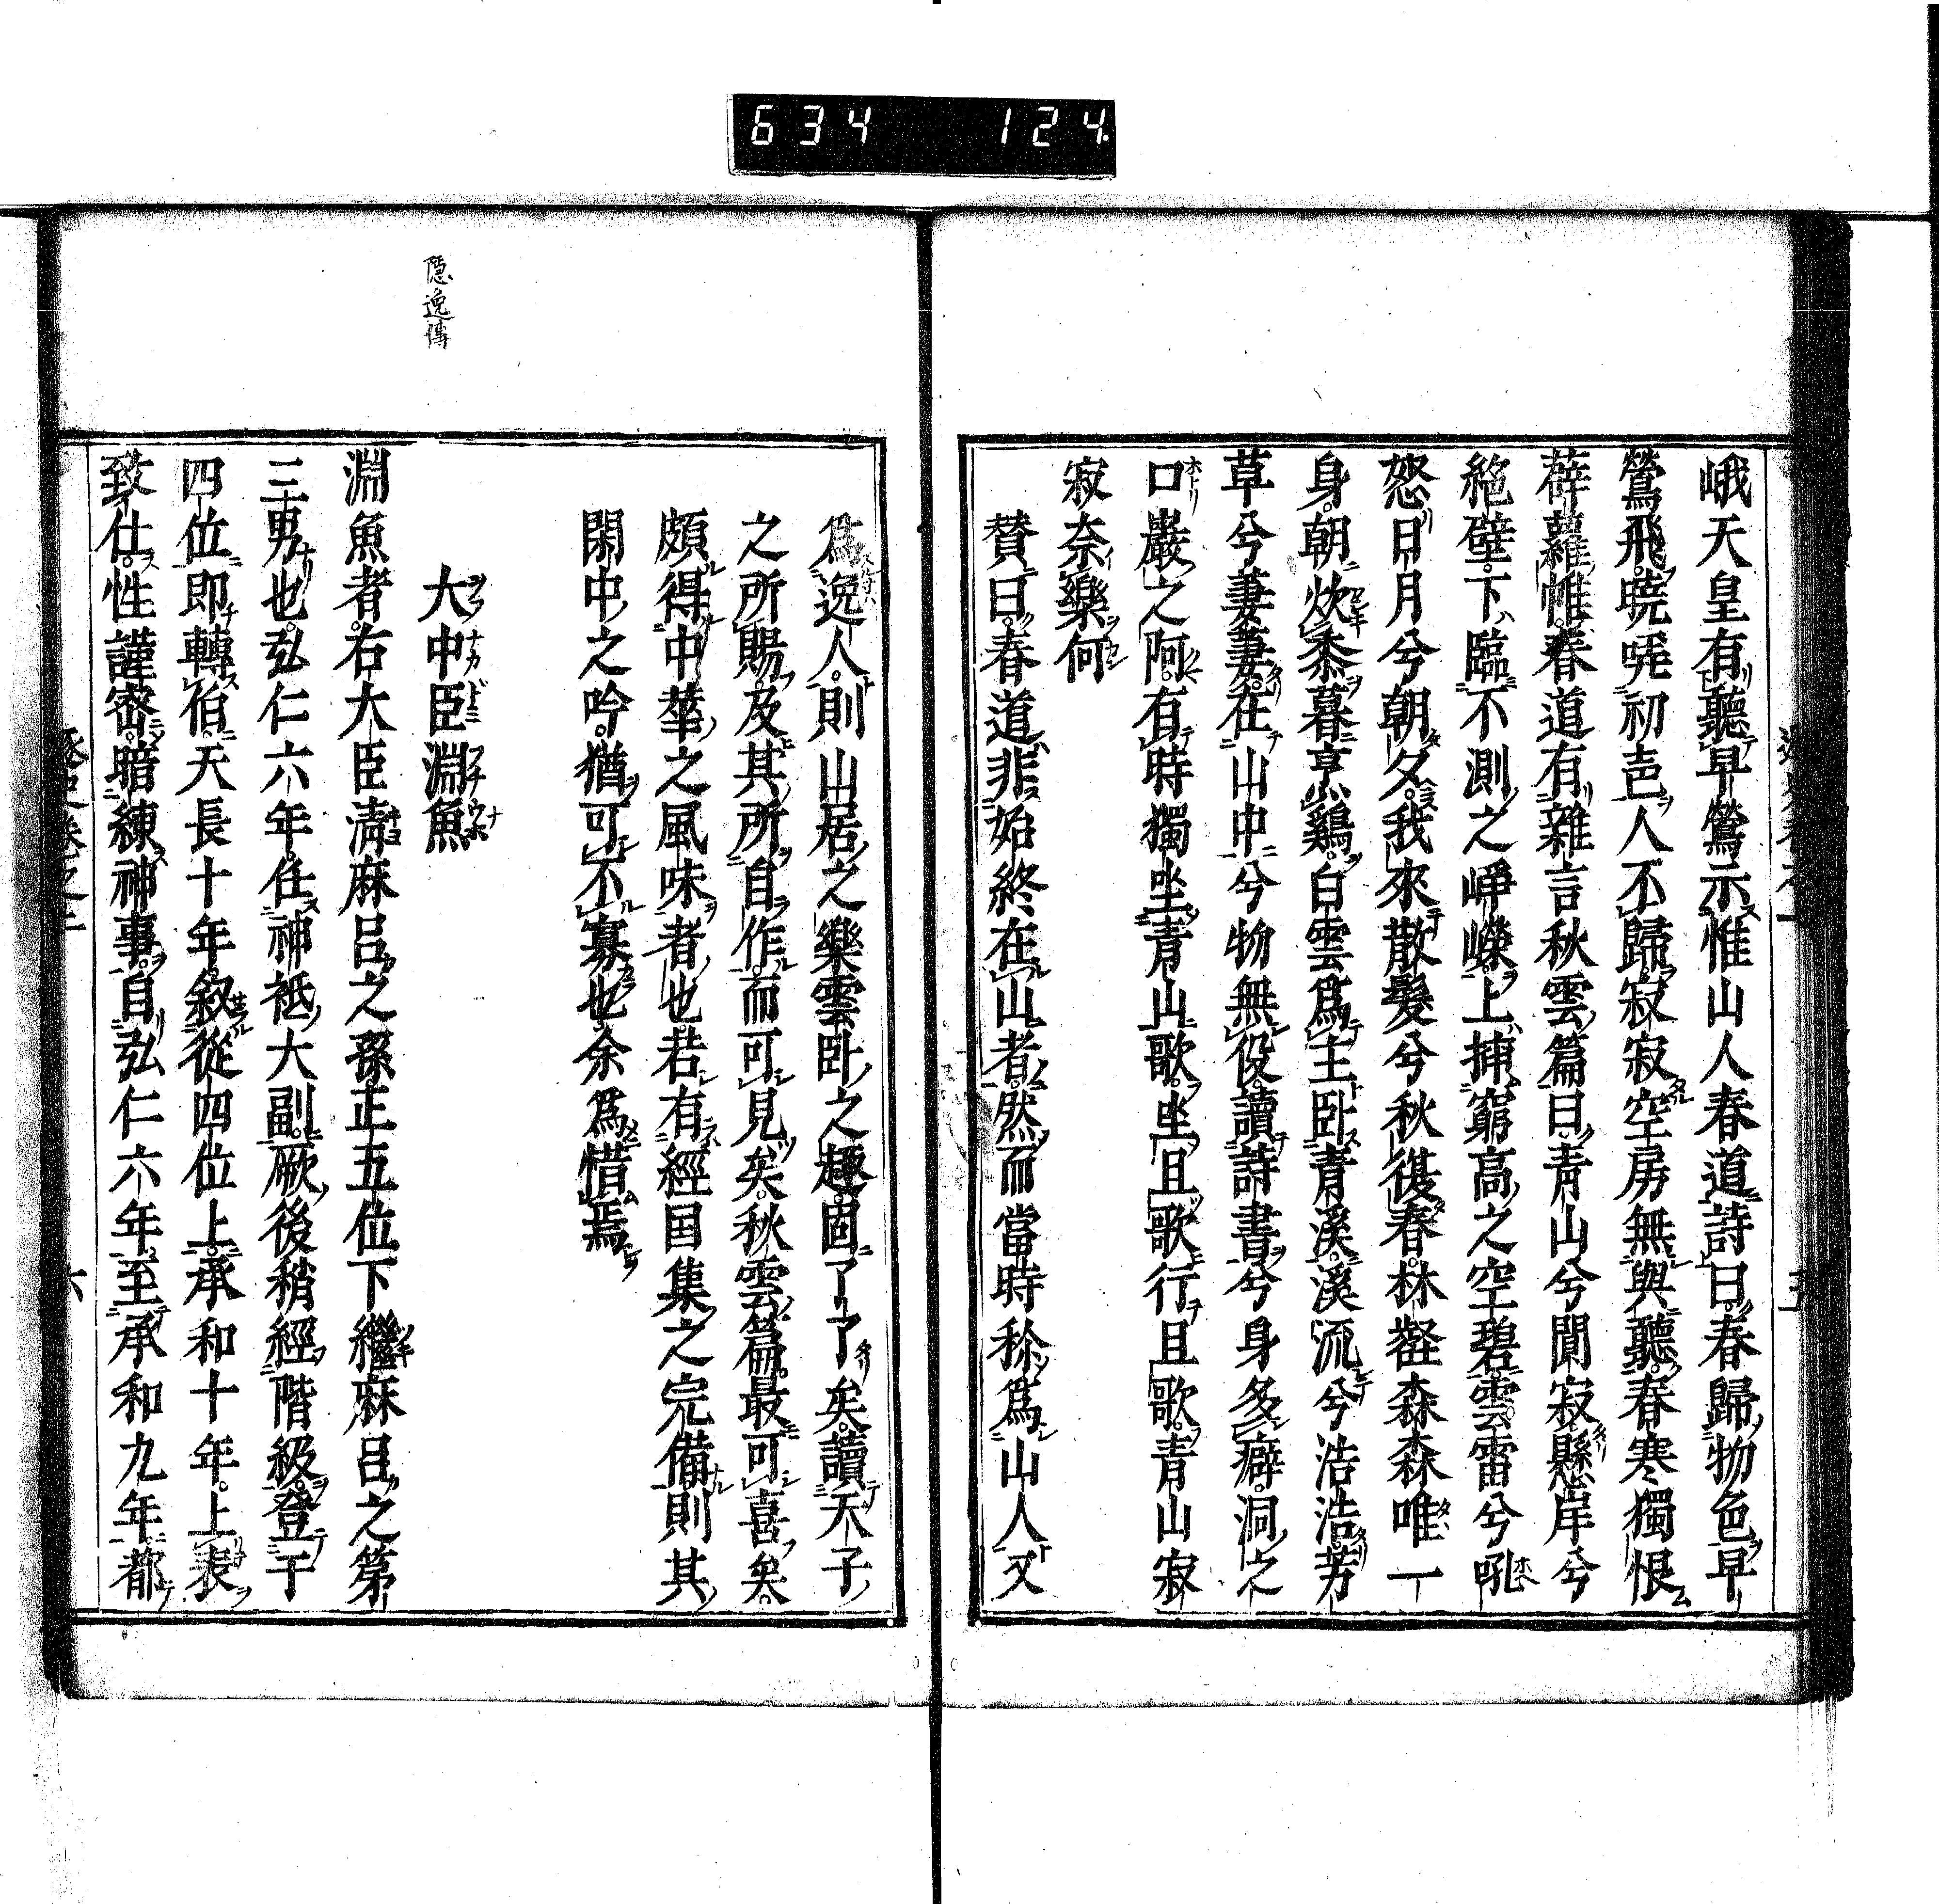 634 124
峨天皇有聽早鶯示惟山人春道詩曰春歸物色早
鶯飛曉哢初声人不歸寂寂空房無與聽春寒獨恨
薜蘿帷春道有雜言秋雲篇曰青山兮閴寂懸岸兮
絶壁下臨不測之崢嶸上捫窮高之空碧雲雷兮吼
怒日月兮朝夕我來散髮兮秋復春林壑森森唯一
身朝炊黍暮亨鷄白雲爲主卧青溪溪流兮浩浩芳
草兮萋萋在山中兮物無役讀詩書兮身多癖洞之
口巖之阿有時獨坐青山歌坐且歌行且歌青山寂
寂奈樂何
賛曰春道非始終在山者然而當時稱爲山人又
隱逸傳
爲逸人則山居之樂雲卧之趣固了了矣讀天子
之所賜及其所自作而可見矣秋雲篇最可喜矣
頗得中華之風味者也若有經国集之完備則其
閑中之吟猶可不寡也余爲惜焉
大中臣淵魚
淵魚者右大臣清麻呂之孫正五位下繼麻呂之第
三男也弘仁六年任神祇大副厥後稍經階級登于
四位即轉伯天長十年敘從四位上承和十年上表
致仕性謹密暗練神事自弘仁六年至承和九年都
六